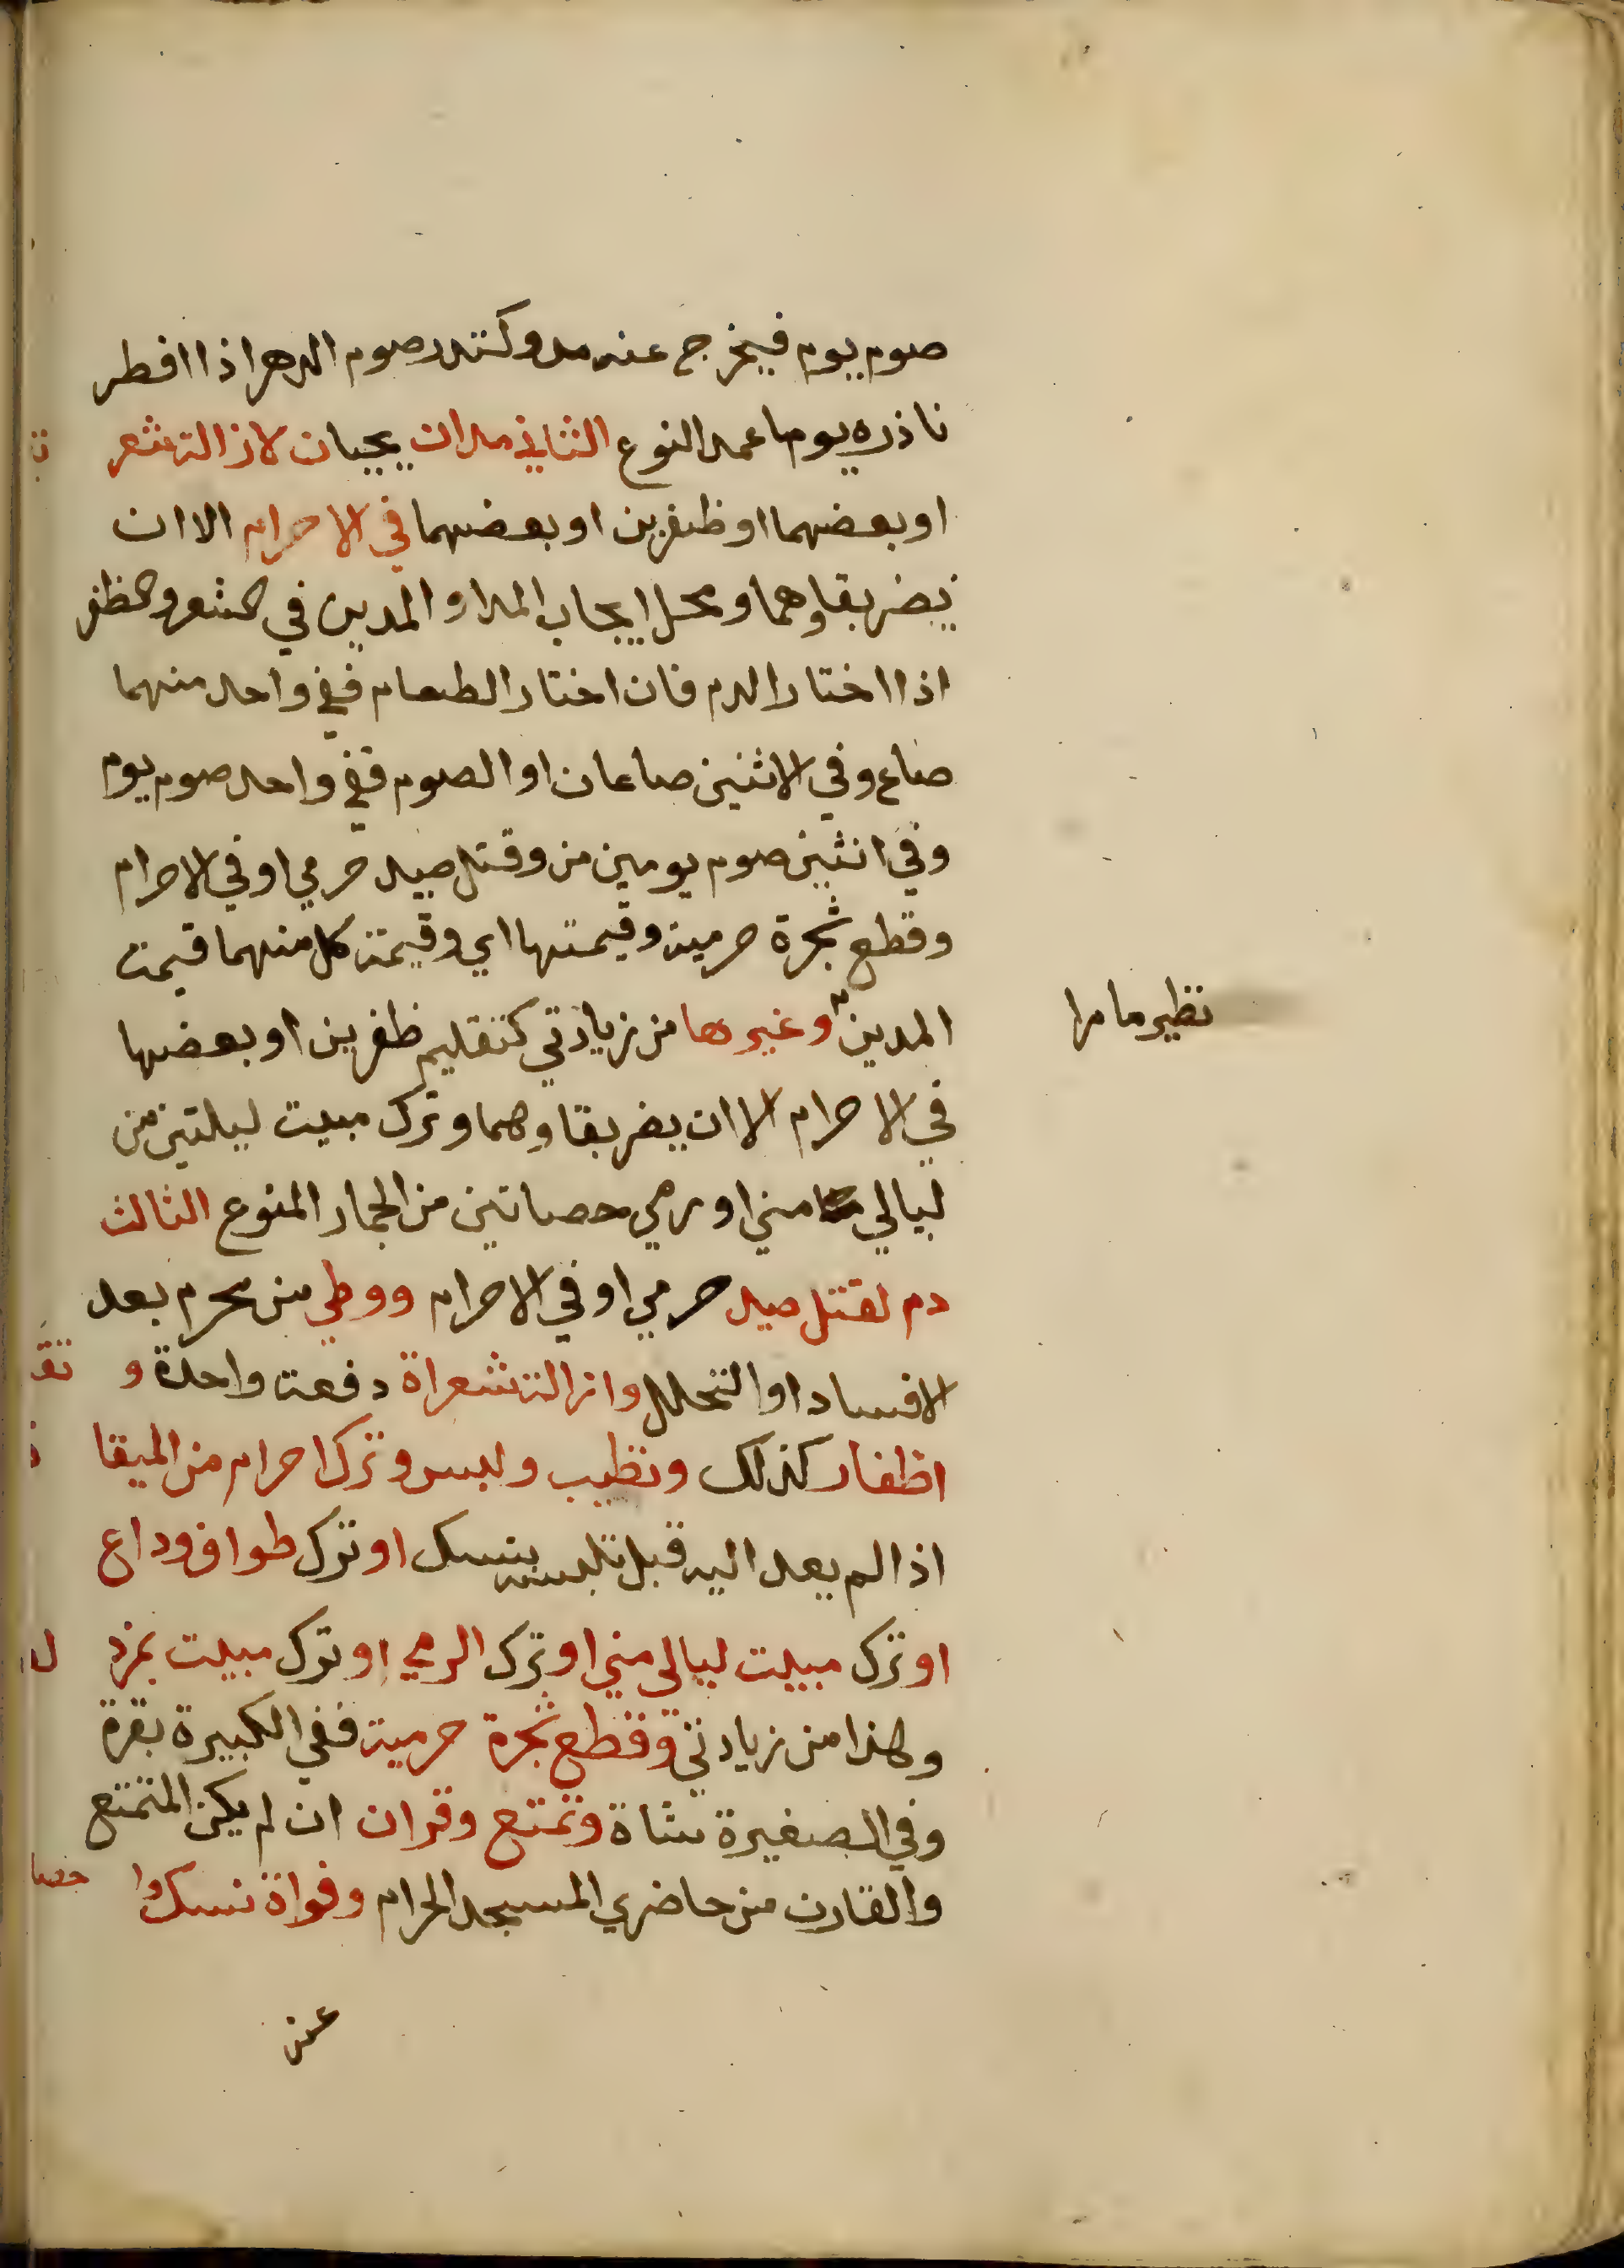 صوم يوم فيخرج عنه مد وكنذر صوم الدهر اذا افطر
ناذره يوما عمدا النوع الثاني مدان يجبان لازالة شعر
او بعضهما او ظفرين او بعضهما في الاحرام الا ان
يضر بقاوهما ومحل ايجاب المد او المدين في الشعر والظفر
اذا اختار الدم فان اختار الطعام ففي واحد منهما
صاع وفي الاثنين صاعان او الصوم ففي واحد صوم يوم
وفي اثنين صوم يومين من وقتل صيد حرمي او في الاحرام
وقطع شجرة حرمية وقيمتها اي وقيمة كل منهما قيمة
المدين وغيرها من زيادتي كتقليم ظفرين او بعضها
نظير ما مرا
في الاحرام الا ان يضر بقاوهما وترك مبيت ليلتين من
ليالي مني او رمي حصاتين من الجمار النوع الثالث
دم لقتل صيد حرمي او في الاحرام ووطي من محرم بعد
الافساد او التحلل وازالة شعراة دفعة واحدة و تق
اظفار كذلك وتطيب ولبس وترك احرام من الميقا
اذا لم يعد اليه قبل تلبسه بنسك او ترك طواف وداع
او ترك مبيت ليالي مني او ترك الرمي او ترك مبيت بمزد ل
وهذا من زيادتي وقطع شجرة حرمية ففي الكبيرة بقرة
وفي الصغيرة شاة وتمتع وقران ان لم يكن المتمتع
والقارن من حاضري المسجد الحرام وفواة نسك وا حصا
عن